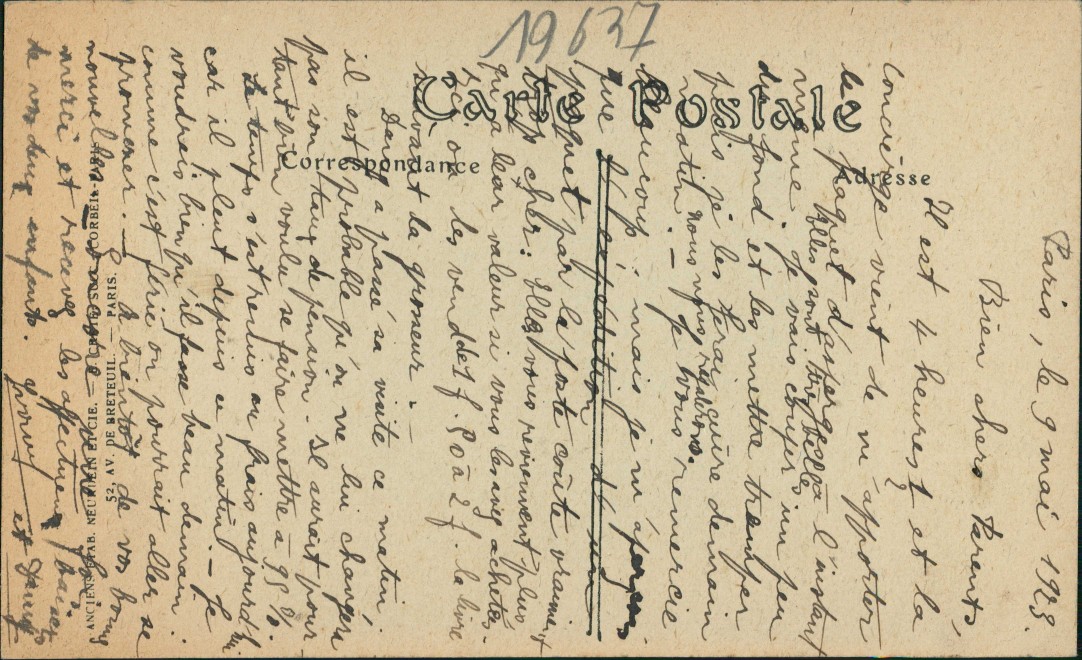 19637
Carte Postale
Correspondance
Adresse
ANCIENS ETAB. NEURDEIN ET CIE. — CRÉTÉ SUCC. CORBEIL-PARIS
52, AV. DE BRETEUIL. — PARIS.
Paris, le 9 mai 1928.
Bien chers Parents,
Il est 4 heures 1/2 et la
concierge vient de m'apporter
le paquet d'asperges à l'instant
même. Elles sont très belles
Je vais couper un peu
de fond et les mettre tremper
puis je les ferai cuire demain
matin. nous nous régalerons.
— Je vous remercie
beaucoup, mais je m'aperçois
que l'expédition d'un
paquet par la poste coûte vraiment
trop cher. Elles vous reviennent plus
qu'à leur valeur si vous les aviez achetées
Ici on les vend de 1f.50 à 2f. la livre
suivant la grosseur. —
Deny a passé sa visite ce matin.
il est probable qu'on ne lui changera
pas son taux de pension. Il aurait pourtant
bien voulu se faire mettre à 95%
Le temps s'est remis au frais aujourd'hui
car il pleut depuis ce matin — Je
voudrais bien qu'il fasse beau demain
comme c'est férié on pourrait aller se
promener. — à bientôt de vos bonnes
nouvelles
merci et recevez les affectueux baisers
de vos deux enfants.